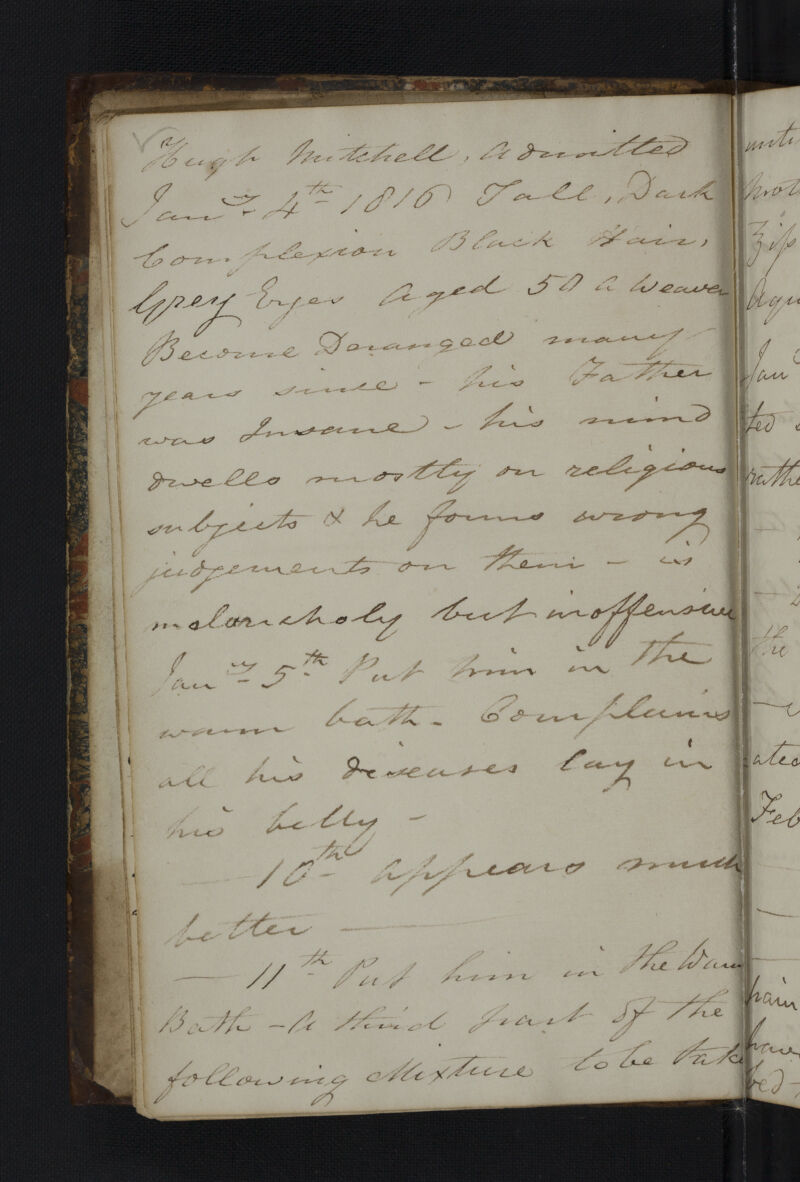 Hugh Mitchell, admitted
Jany. 4th 1816 Tall, Dark
Complexion Black Hair,
Grey Eyes aged 50 a Weaver
Become Deranged many
years since - his Father
was Insane - his mind
dwells mostly on religious
subjects & he forms wrong
judgements on them - is
melancholy but inoffensive
Jany. 5th Put him in the
warm bath - Complains
all his diseases lay in
his belly -
— 10th appears much
better —
— 11th Put him in the Warm
Bath - A third part of the
following Mixture to be take
Zip
Agu
Jan
ted
the
ated
Feb
pain
have
bed